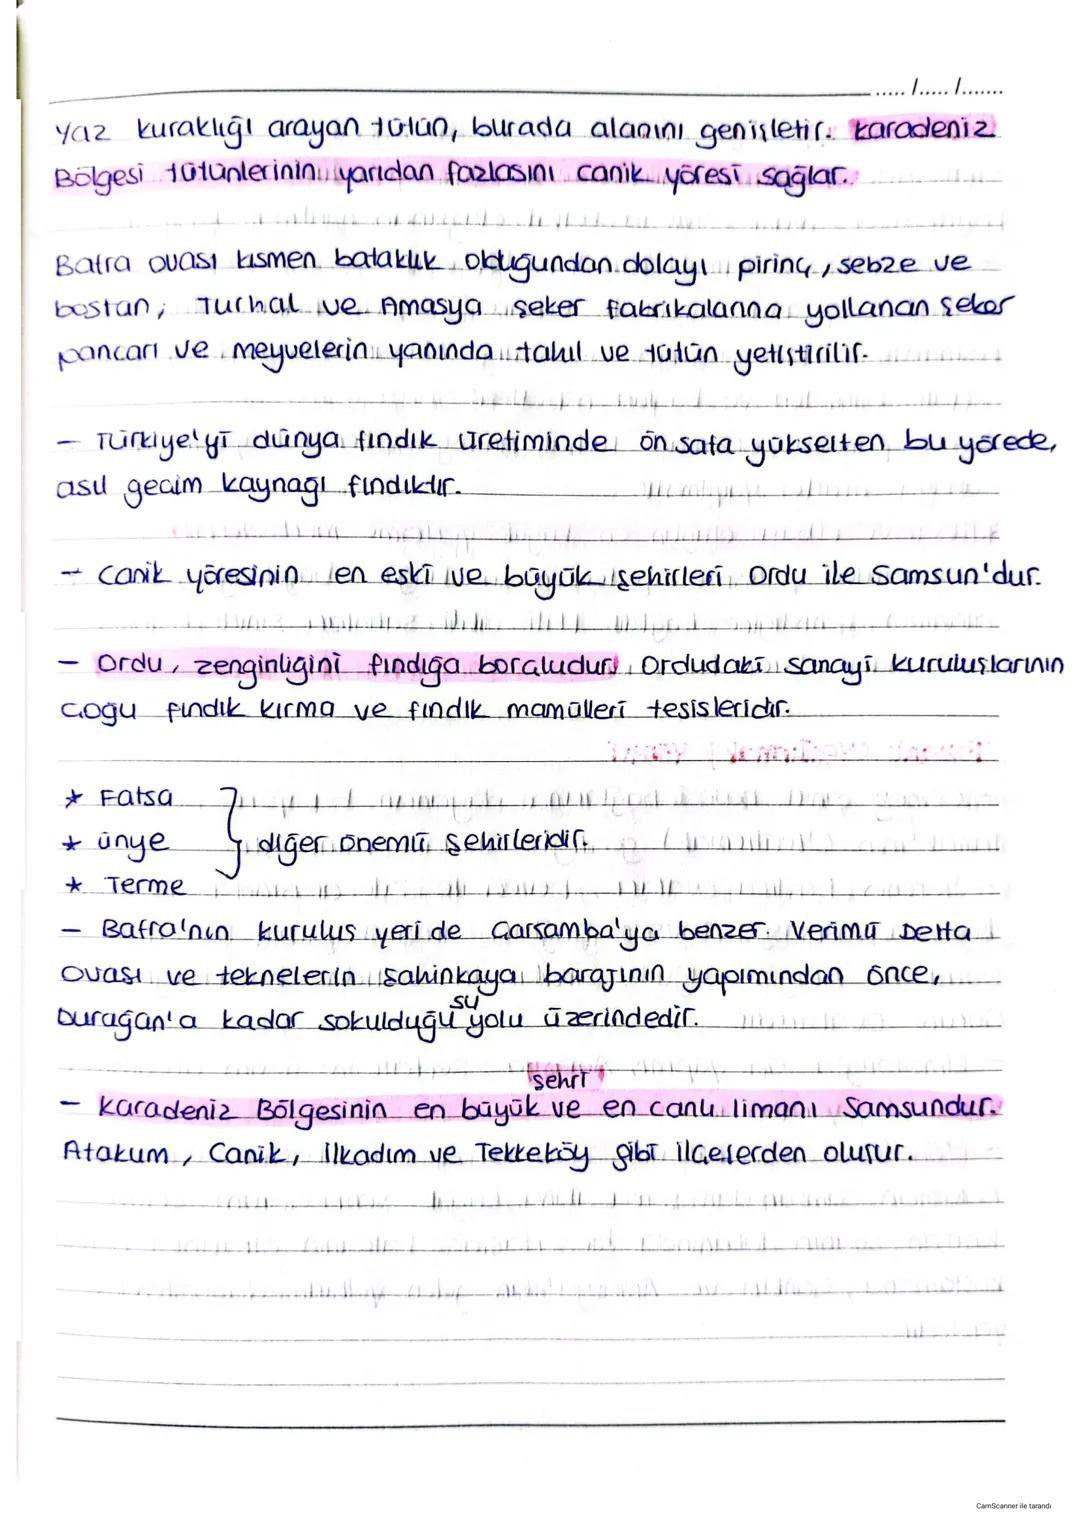 ..... /..... /.......
Yaz kuraklığı arayan tütün, burada alanını genişletir. Karadeniz
Bölgesi tütünlerinin yarıdan fazlasını canik yöresi sağlar.
Bafra ovası kısmen bataklık olduğundan dolayı pirinç, sebze ve
bostan; Turhal ve Amasya şeker fabrikalarına yollanan şeker
pancarı ve meyvelerin yanında tahıl ve tütün yetiştirilir.
- Türkiye'yi dünya fındık üretiminde ön safa yükselten bu yörede,
asıl geçim kaynağı fındıktır.
- Canik yöresinin en eski ve büyük şehirleri Ordu ile Samsun'dur.
- Ordu, zenginliğini fındığa borçludur. Ordudaki sanayi kuruluşlarının
çoğu fındık kırma ve fındık mamülleri tesisleridir.
* Fatsa
* Ünye } diğer önemli şehirleridir.
* Terme
- Bafra'nın kuruluş yeri de Çarşamba'ya benzer. Verimli Delta
Ovası ve teknelerin Şahinkaya barajının yapımından önce,
su
Durağan'a kadar sokulduğu yolu üzerindedir.
şehri
- Karadeniz Bölgesinin en büyük ve en canlı limanı Samsundur.
Atakum, Canik, İlkadım ve Tekkeköy gibi ilçelerden oluşur.
CamScanner ile tarandı